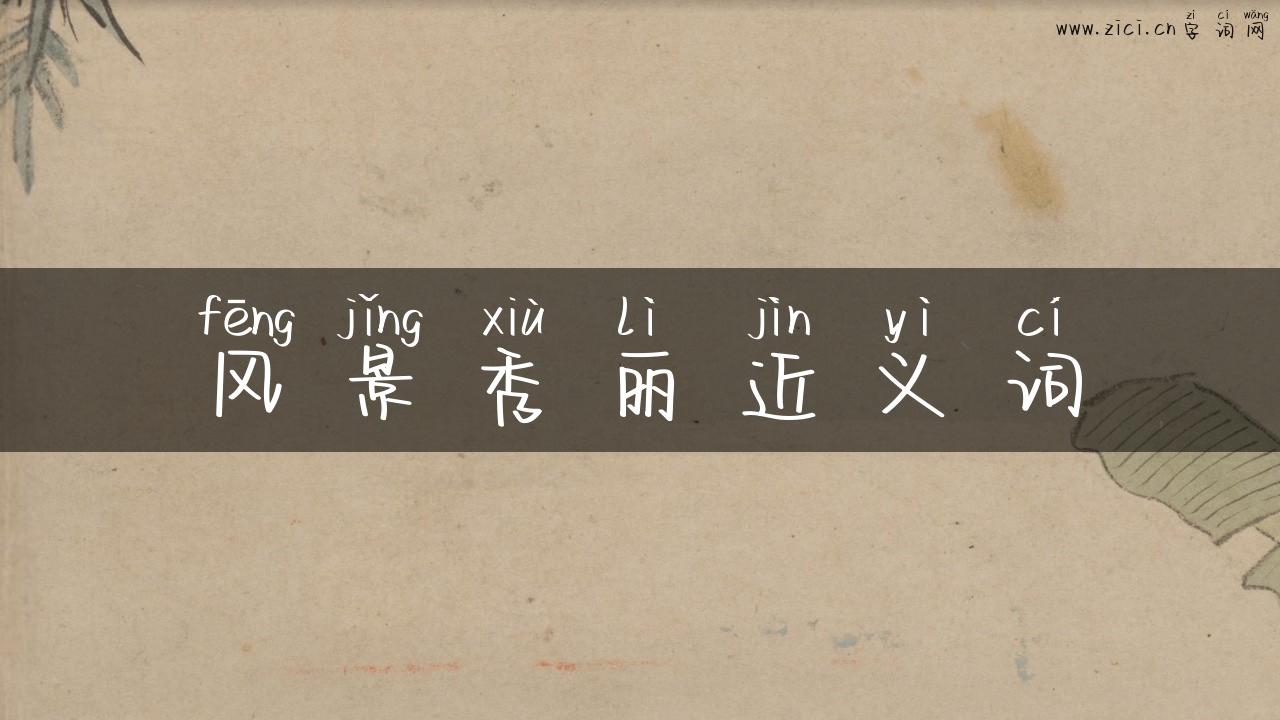 zì cí wǎng
www.zici.cn 字词网
fēng jǐng xiù lì jìn yì cí
风景秀丽近义词